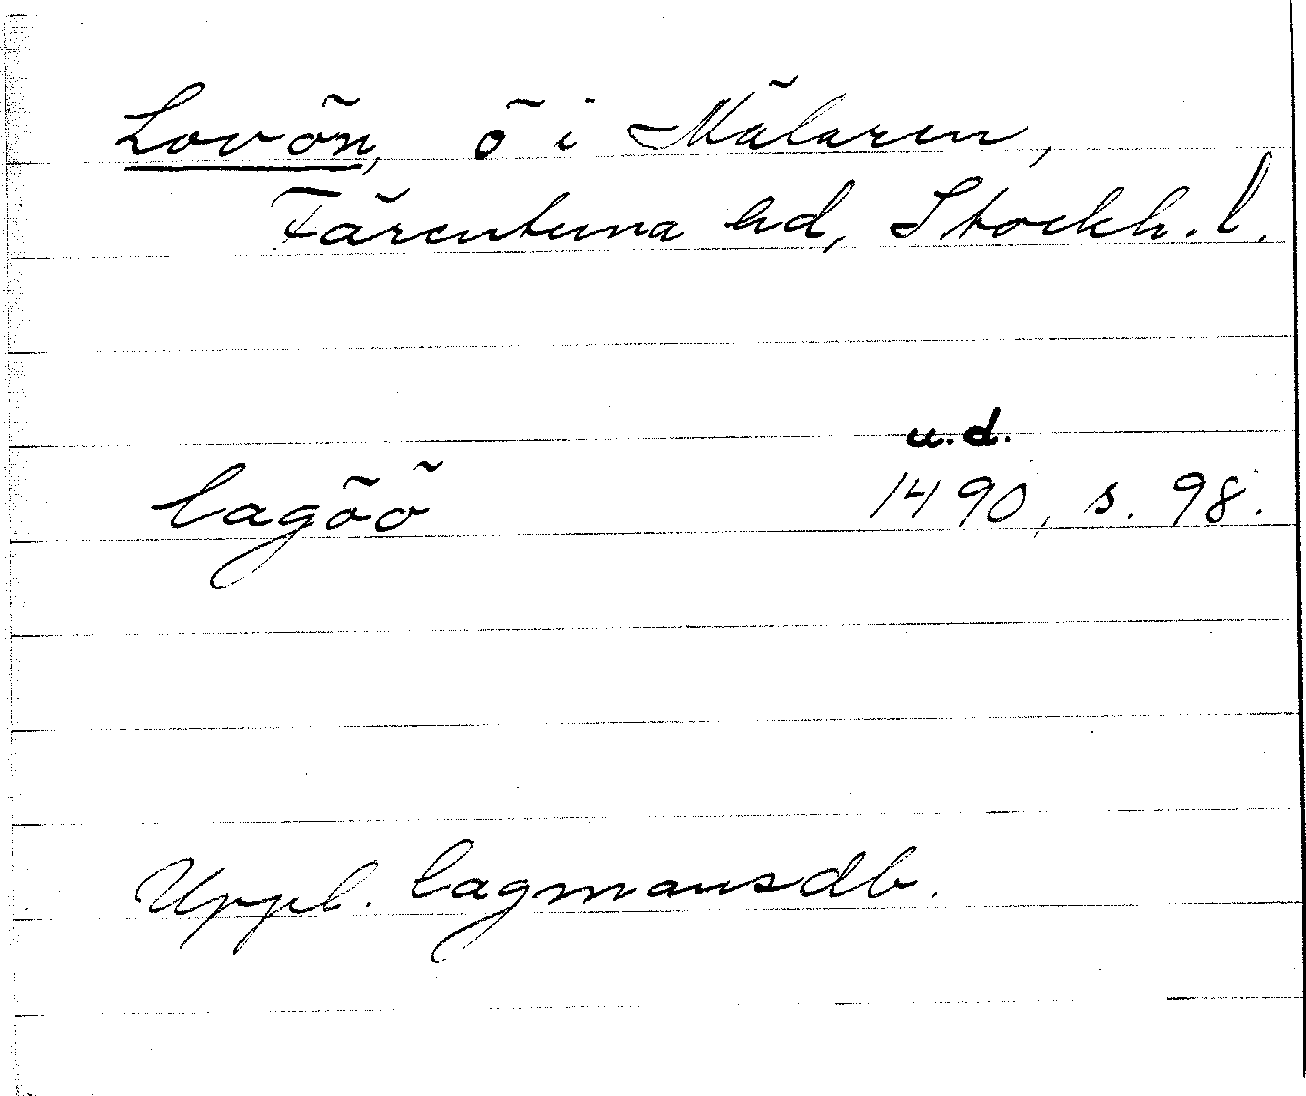 Lovön, ö i Mälaren,
Färentuna hd, Stockh. l.
u.d.
lagöö 1490, s. 98.
Uppl. lagmansdb.